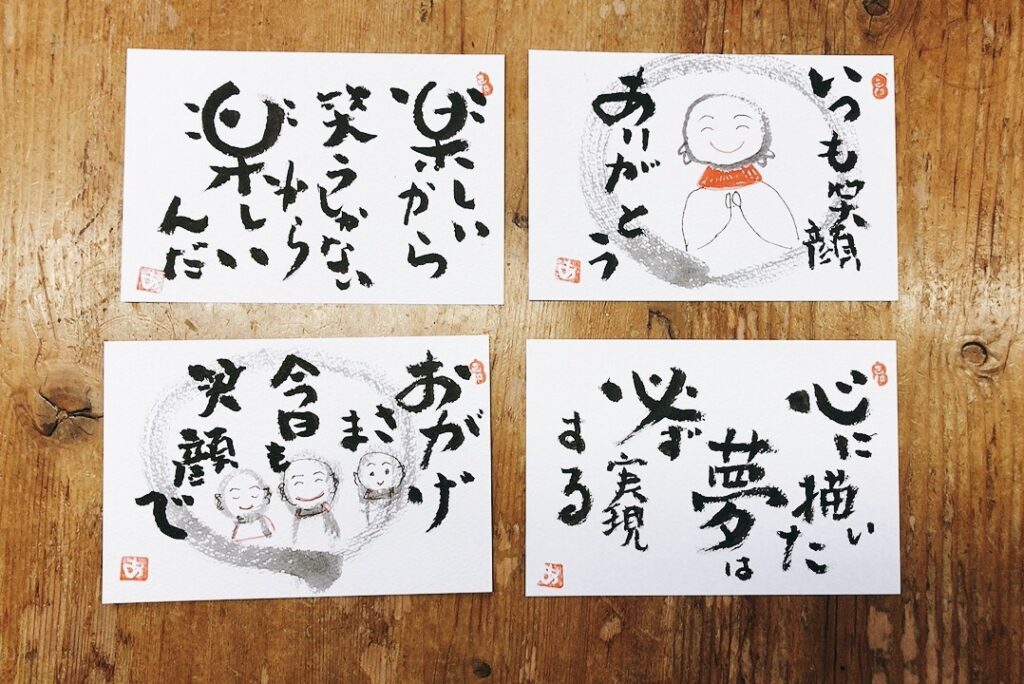 楽しいから
笑うじゃない
楽しい
んだ
いつも笑顔
ありがとう
あ
おかげ
さま
今日も
笑顔で
心に
描いた
夢は
必ず
実現
する